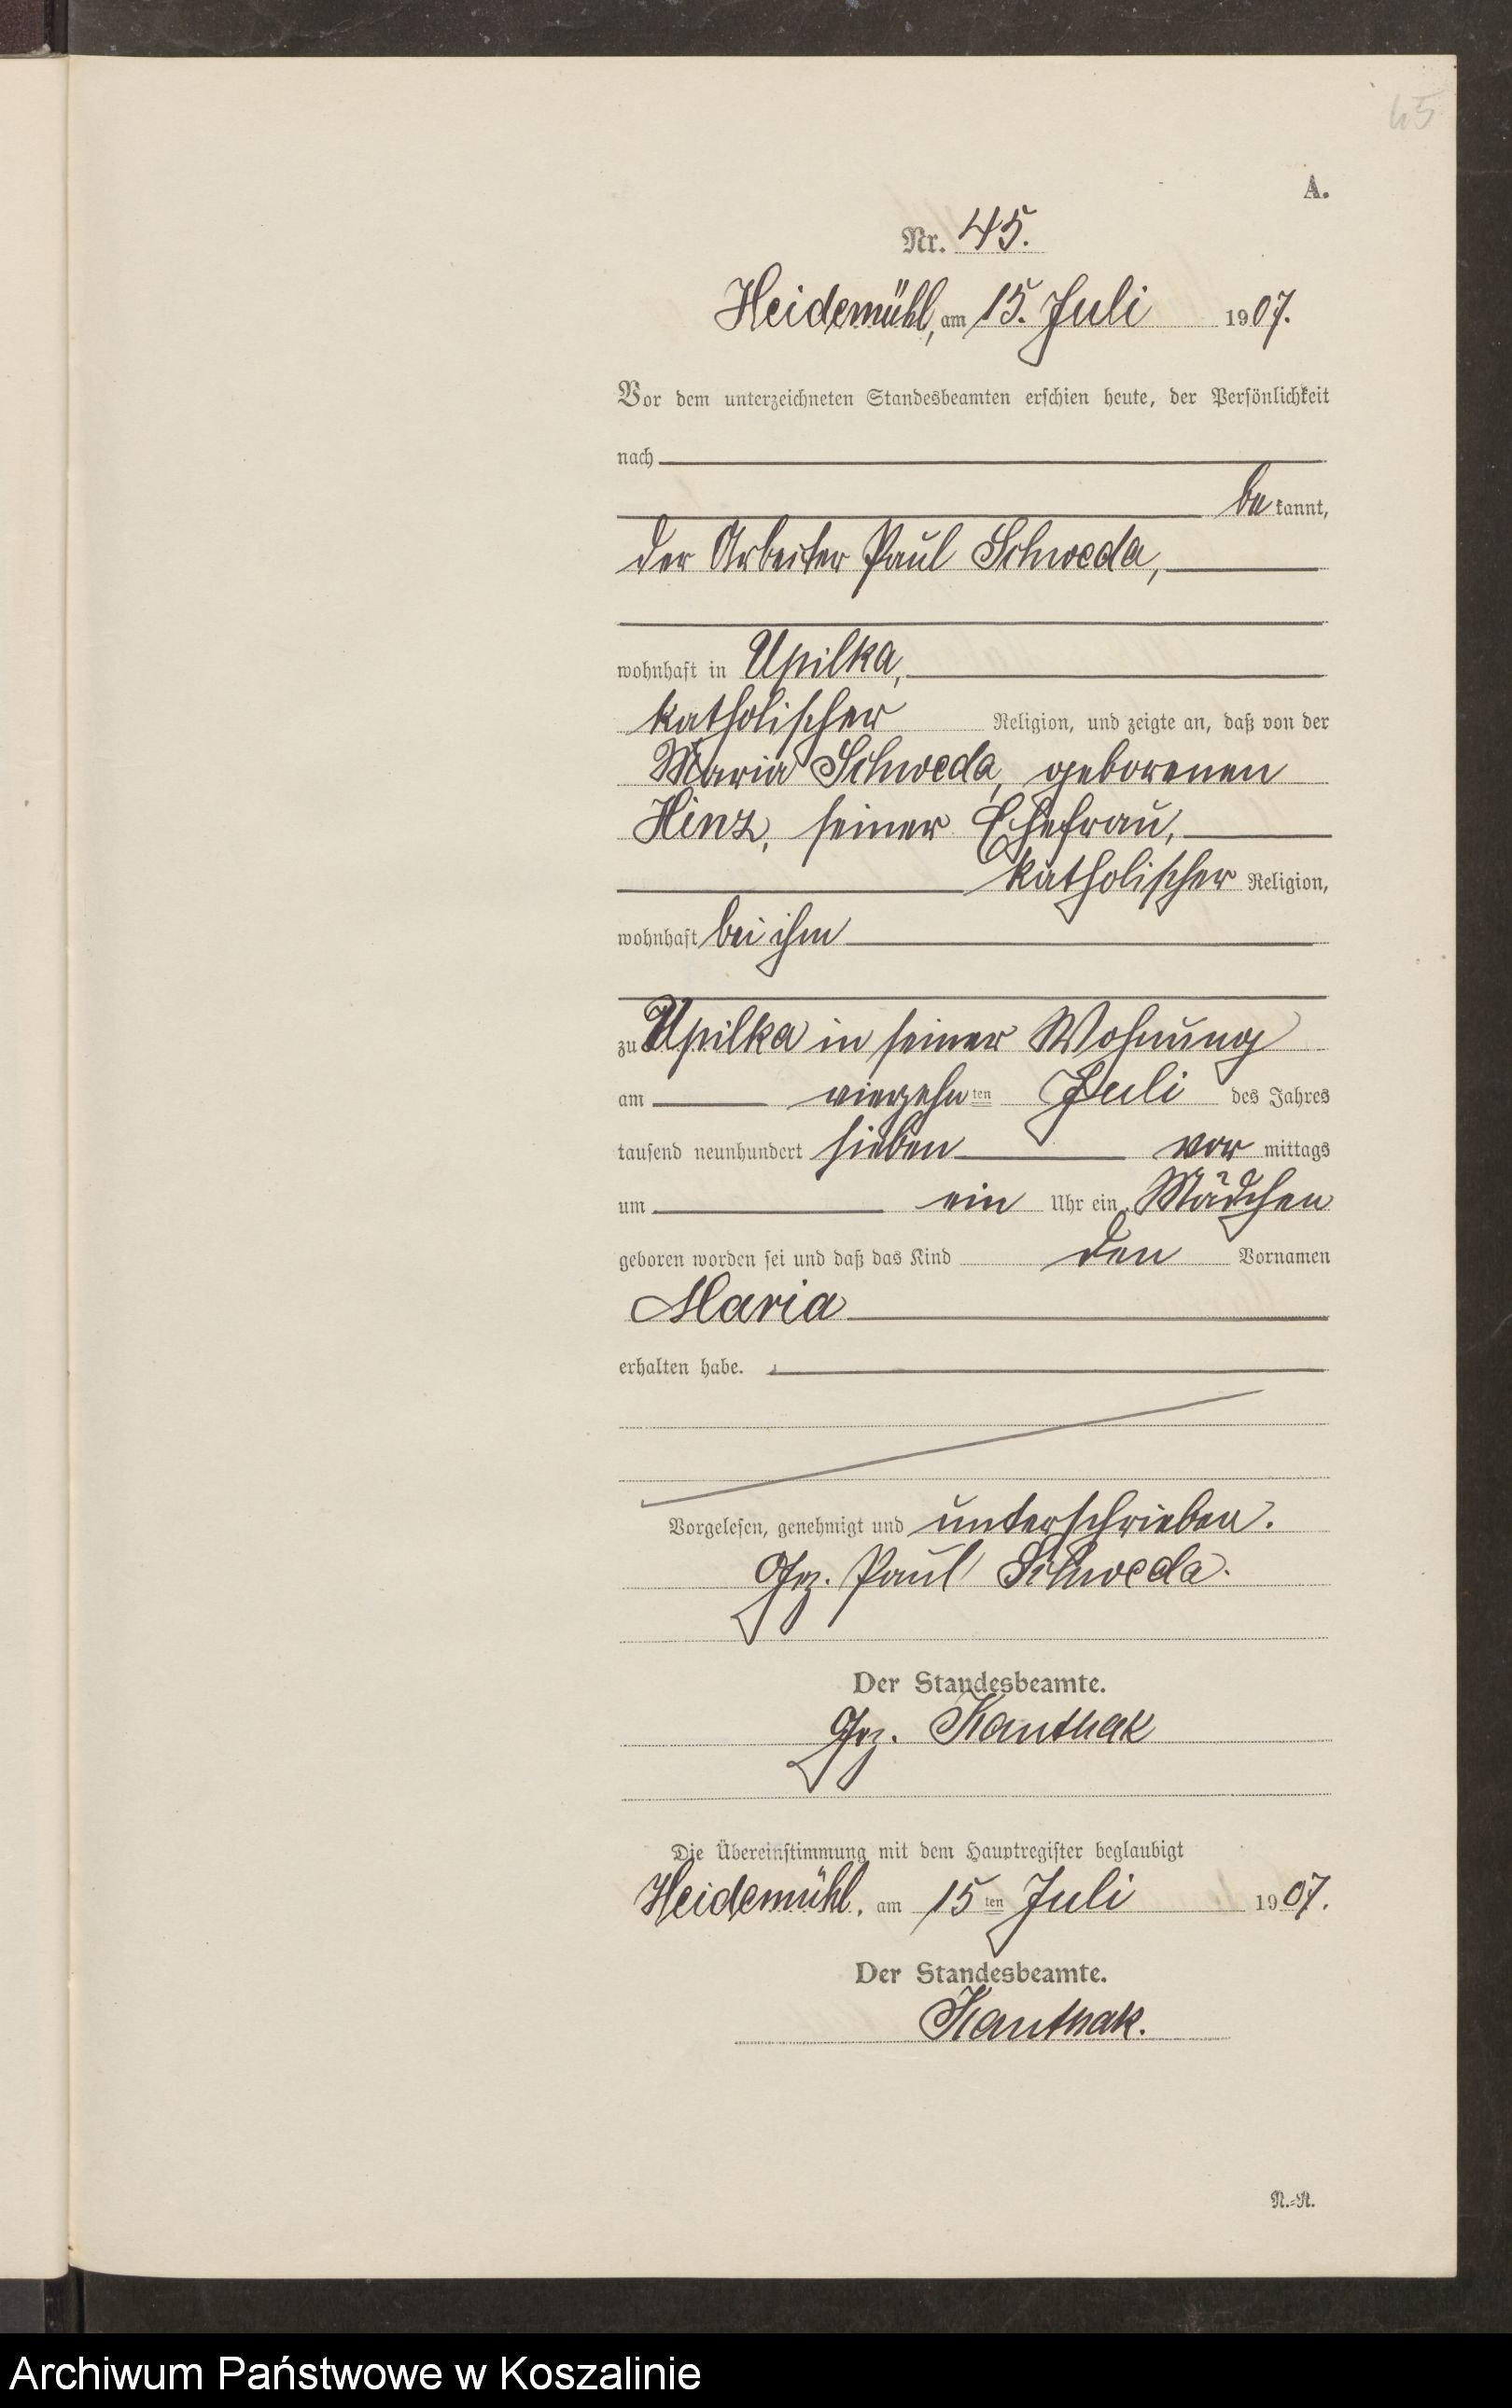 45
A.
Nr. 45.
Heidemühl, am 15. Juli 1907.
Vor dem unterzeichneten Standesbeamten erschien heute, der Persönlichkeit
nach
bekannt,
der Arbeiter Paul Schweda,
wohnhaft in Upilka,
katholischer Religion, und zeigte an, daß von der
Maria Schweda, geborenen
Hinz, seiner Ehefrau,
katholischer Religion,
wohnhaft bei ihm
zu Upilka in seiner Wohnung
am vierzehnten Juli des Jahres
tausend neunhundert sieben vormittags
um ein Uhr ein Mädchen
geboren worden sei und daß das Kind den Vornamen
Maria
erhalten habe.
Vorgelesen, genehmigt und unterschrieben.
Gez. Paul Schweda.
Der Standesbeamte.
Gez. Kanthak
Die Übereinstimmung mit dem Hauptregister beglaubigt
Heidemühl, am 15ten Juli 1907.
Der Standesbeamte.
Kanthak.
N.=R.
Archiwum Państwowe w Koszalinie